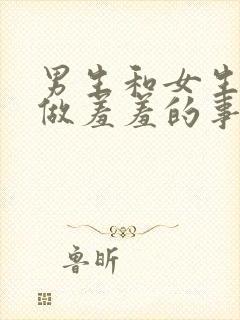 男生和女生
做羞羞的事
鲁昕